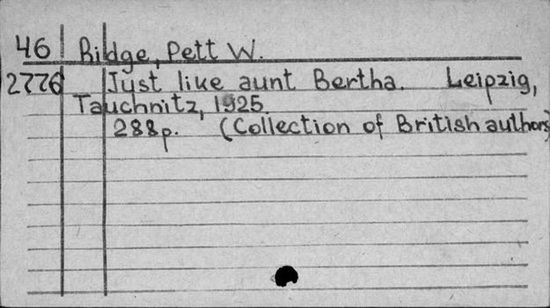 46 Ridge, Pett W.
2776 Just like aunt Bertha. Leipzig,
Tauchnitz, 1925.
288p. (Collection of British authors)